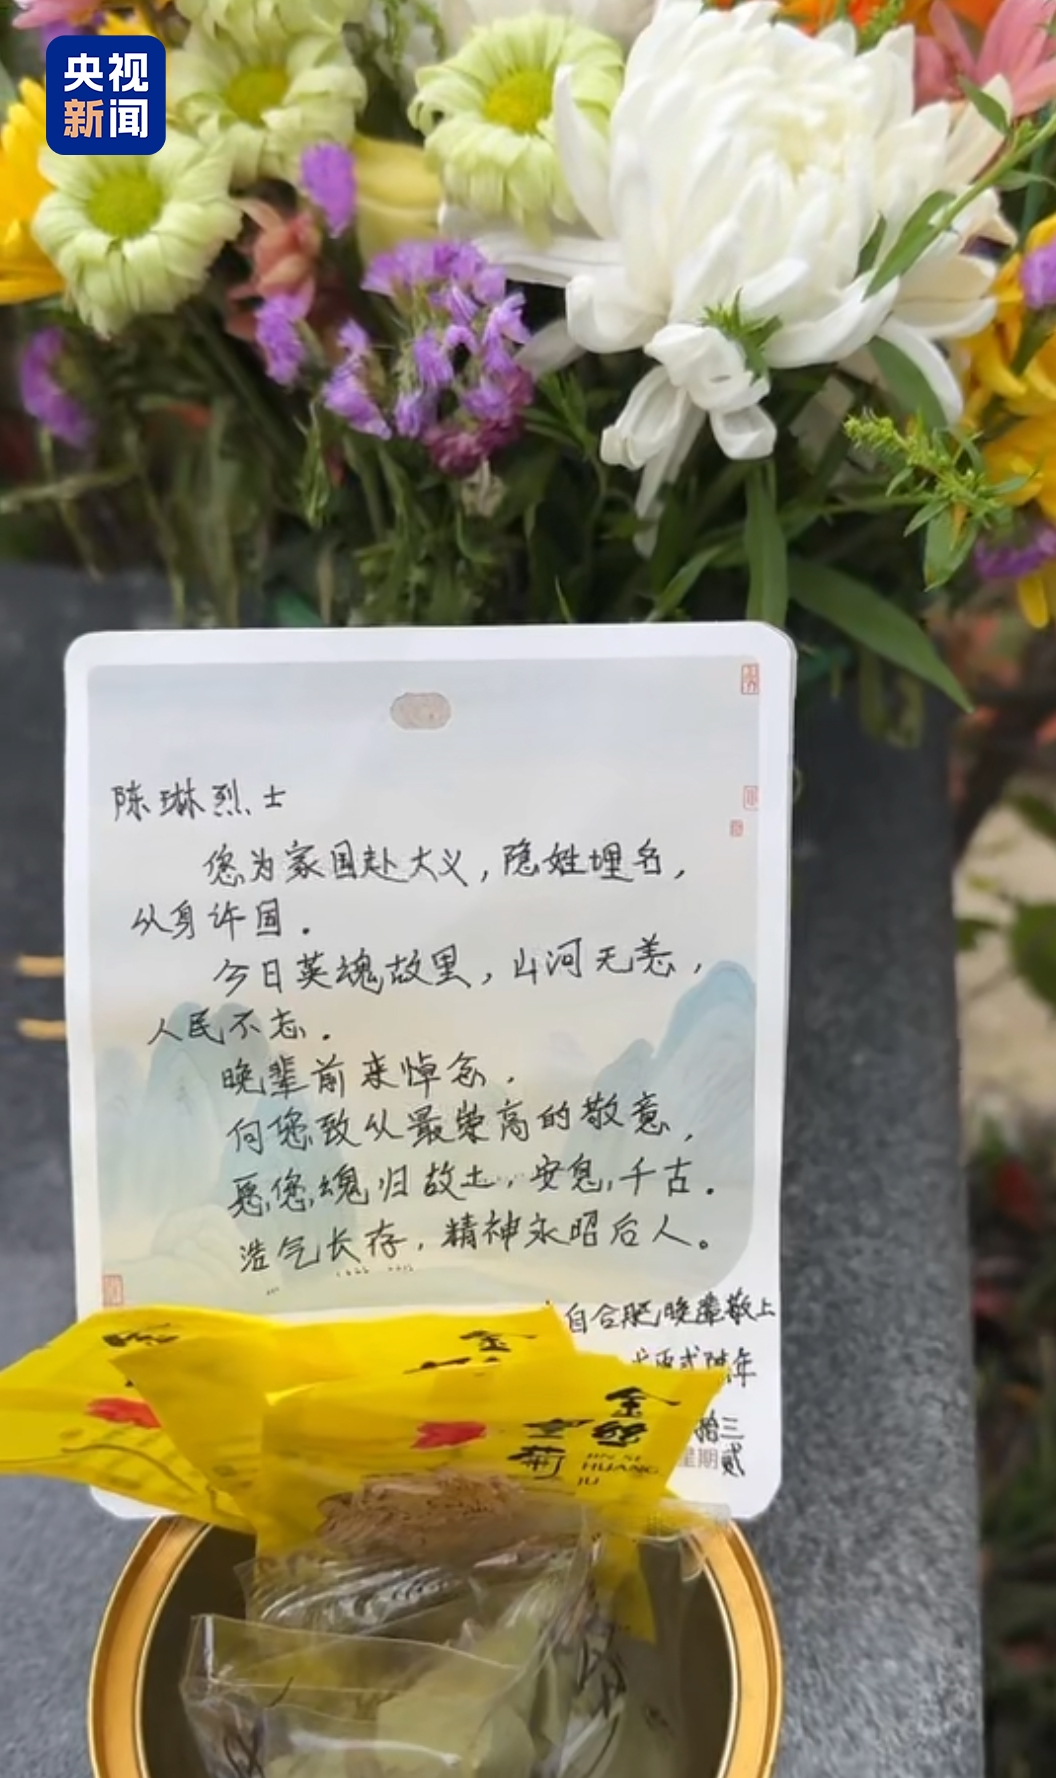 央视
新闻
陈琳烈士
您为家国赴大义，隐姓埋名，
以身许国．
今日英魂故里，山河无恙，
人民不忘．
晚辈前来悼念．
向您致以最崇高的敬意，
愿您魂归故土，安息千古．
浩气长存，精神永昭后人。
自合肥晚辈敬上
年
拾三
星期贰
金
金丝
皇菊
JIN SI
HUANG
JU